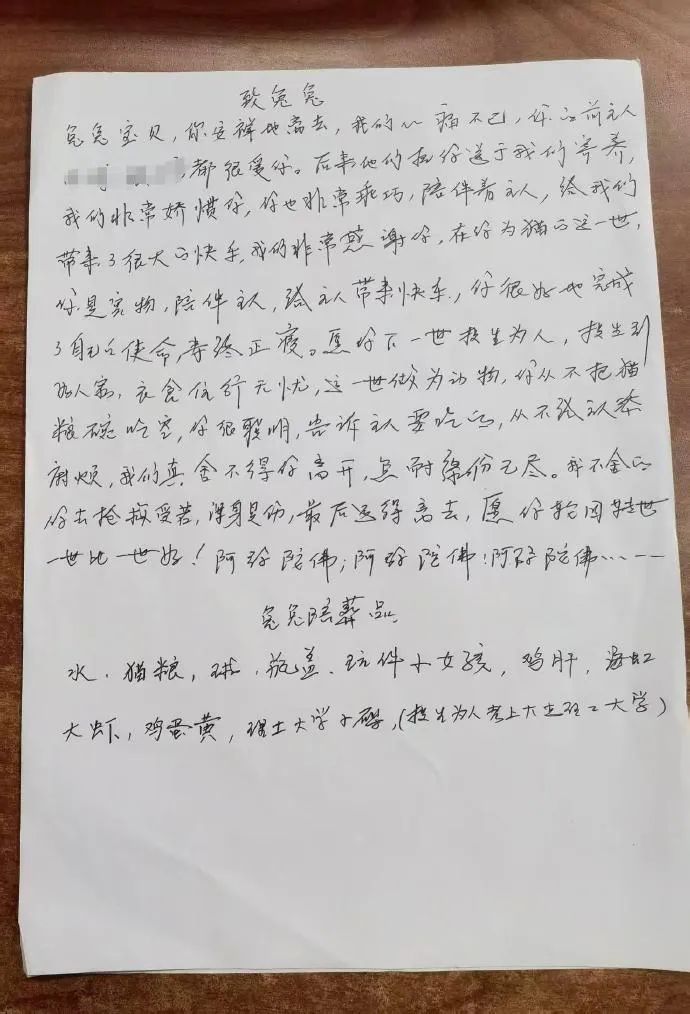 致兔兔
兔兔宝贝，你安祥地离去，我的心痛不已，你的前主人
都很爱你。后来他们把你送于我们寄养，
我们非常娇惯你，你也非常乖巧，陪伴着主人，给我们
带来了很大的快乐，我们非常感谢你，在你为猫的这一世，
你是宠物，陪伴主人，给主人带来快乐，你很好地完成
了自己的使命，寿终正寝。愿你下一世投生为人，投生到
好人家，衣食住行无忧，这一世做为动物，你从不把猫
粮碗吃空，你很聪明，告诉主人要吃的，从不给主人添
麻烦，我们真舍不得你离开，怎耐缘份已尽。我不舍的
你去抢救受苦，浑身是伤，最后还得离去，愿你轮回转世
一世比一世好！阿弥陀佛；阿弥陀佛！阿弥陀佛……
兔兔陪葬品
水、猫粮，球，瓶盖、玩件小女孩，鸡肝，海虹
大虾，鸡蛋黄，理土大学小碑，(投生为人考上大连理工大学)